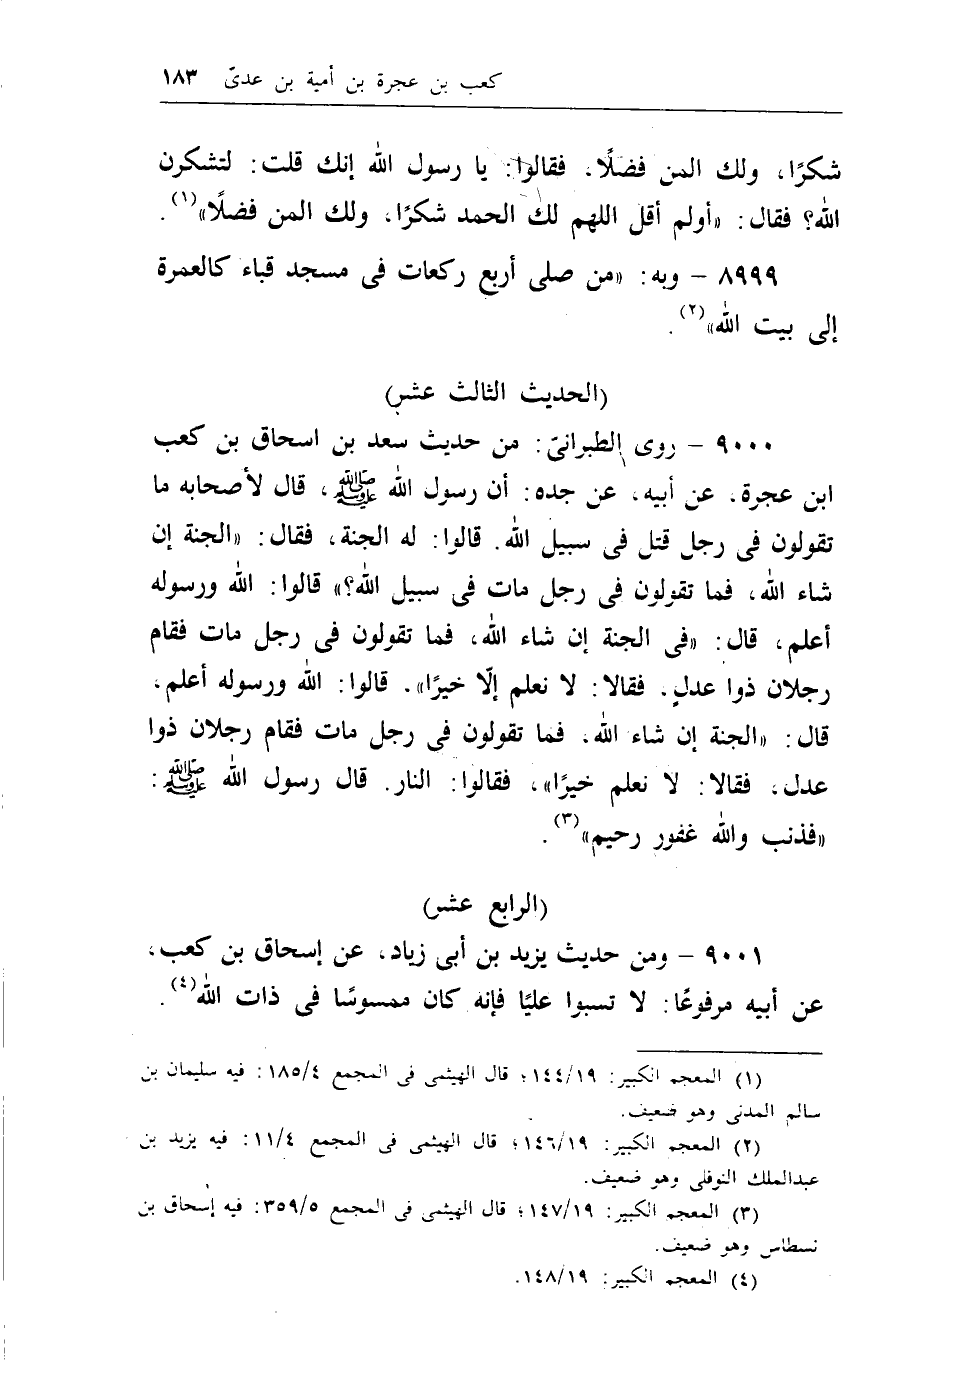 كعب بن عجرة بن أمية بن عدىّ ١٨٣
شكرًا، ولك المن فضلًا، فقالوا: يا رسول الله إنك قلت: لتشكرن
الله؟ فقال: «أولم أقل اللهم لك الحمد شكرًا، ولك المن فضلًا»(١).
٨٩٩٩ – وبه: «من صلى أربع ركعات فى مسجد قباء كالعمرة
إلى بيت الله»(٢).
(الحديث الثالث عشر)
٩٠٠٠ – روى الطبرانىّ: من حديث سعد بن اسحاق بن كعب
ابن عجرة، عن أبيه، عن جده: أن رسول الله ﷺ، قال لأصحابه ما
تقولون فى رجل قتل فى سبيل الله. قالوا: له الجنة، فقال: «الجنة إن
شاء الله، فما تقولون فى رجل مات فى سبيل الله؟» قالوا: الله ورسوله
أعلم، قال: «فى الجنة إن شاء الله، فما تقولون فى رجل مات فقام
رجلان ذوا عدلٍ، فقالا: لا نعلم إلّا خيرًا». قالوا: الله ورسوله أعلم،
قال: «الجنة إن شاء الله، فما تقولون فى رجل مات فقام رجلان ذوا
عدل، فقالا: لا نعلم خيرًا»، فقالوا: النار. قال رسول الله ﷺ:
«فذنب والله غفور رحيم»(٣).
(الرابع عشر)
٩٠٠١ – ومن حديث يزيد بن أبى زياد، عن إسحاق بن كعب،
عن أبيه مرفوعًا: لا تسبوا عليًا فإنه كان ممسوسًا فى ذات الله(٤).
(١) المعجم الكبير: ١٤٤/١٩؛ قال الهيثمى فى المجمع ١٨٥/٤: فيه سليمان بن
سالم المدنى وهو ضعيف.
(٢) المعجم الكبير: ١٤٦/١٩؛ قال الهيثمى فى المجمع ١١/٤: فيه يزيد بن
عبدالملك النوفلى وهو ضعيف.
(٣) المعجم الكبير: ١٤٧/١٩؛ قال الهيثمى فى المجمع ٣٥٩/٥: فيه إسحاق بن
نسطاس وهو ضعيف.
(٤) المعجم الكبير: ١٤٨/١٩.